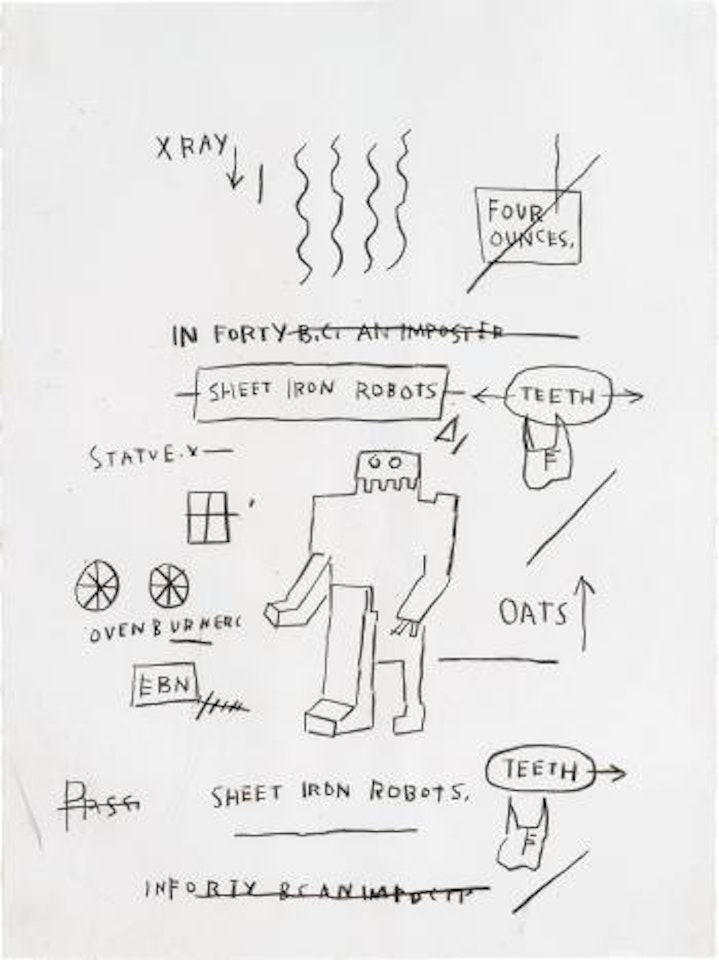 X RAY
FOUR
OUNCES.
IN FORTY B.C. AN IMPOSTER
SHEET IRON ROBOTS
TEETH
F
STATUE.X
OVEN BURNERS
OATS
EBN
TEETH
SHEET IRON ROBOTS.
F
IN FORTY BC AN